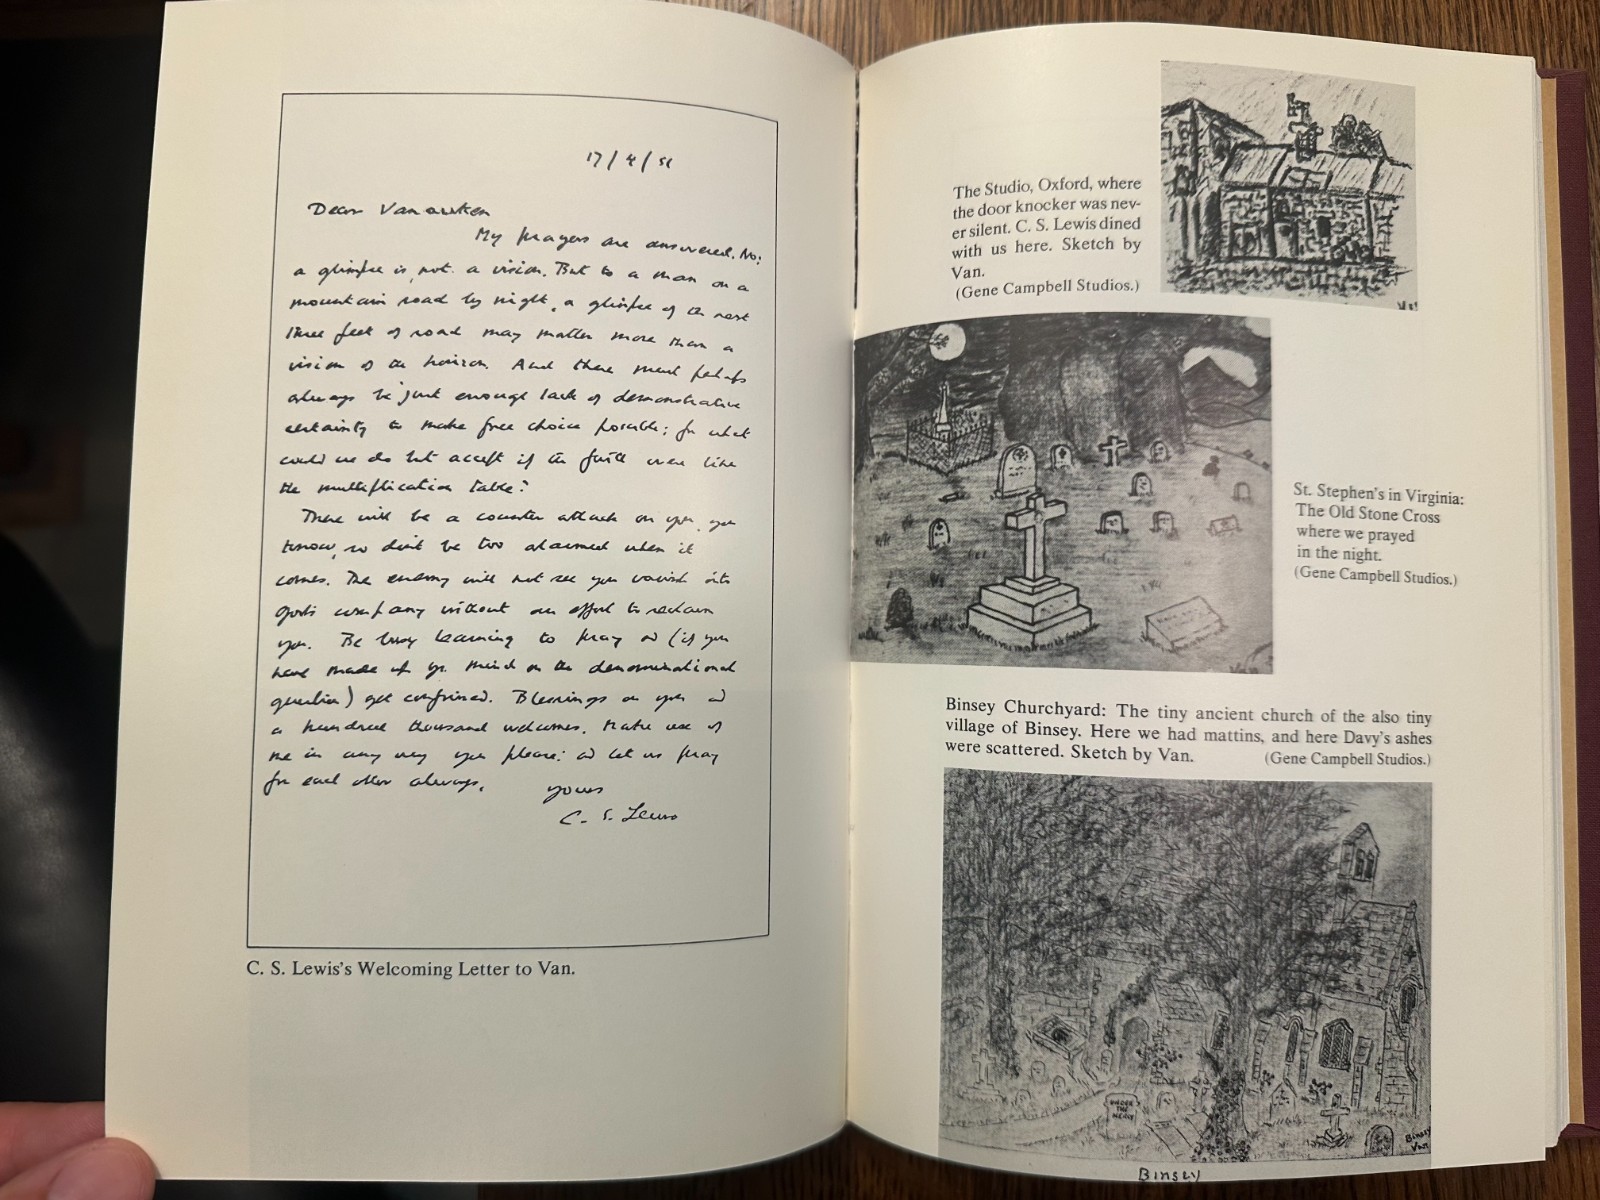 17/4/51
Dear Vanauken
My prayers are answered. No:
a glimpse is not a vision. But to a man on a
mountain road by night, a glimpse of the next
three feet of road may matter more than a
vision of the horizon. And there must perhaps
always be just enough lack of demonstrative
certainty to make free choice possible; for what
could we do but accept if the faith were like
the multiplication table?
There will be a counter attack on you, you
know, so don't be too alarmed when it
comes. The enemy will not see you vanish into
God's company without an effort to reclaim
you. Be busy learning to pray and (if you
have made up yr. mind on the denominational
question) get confirmed. Blessings on you and
a hundred thousand welcomes. Make use of
me in any way you please: and let us pray
for each other always.
Yours
C. S. Lewis
C. S. Lewis's Welcoming Letter to Van.
The Studio, Oxford, where
the door knocker was nev-
er silent. C. S. Lewis dined
with us here. Sketch by
Van.
(Gene Campbell Studios.)
St. Stephen's in Virginia:
The Old Stone Cross
where we prayed
in the night.
(Gene Campbell Studios.)
Binsey Churchyard: The tiny ancient church of the also tiny
village of Binsey. Here we had mattins, and here Davy's ashes
were scattered. Sketch by Van. (Gene Campbell Studios.)
UNDER
THE
MERCY
Binsey
Van
BINSEY